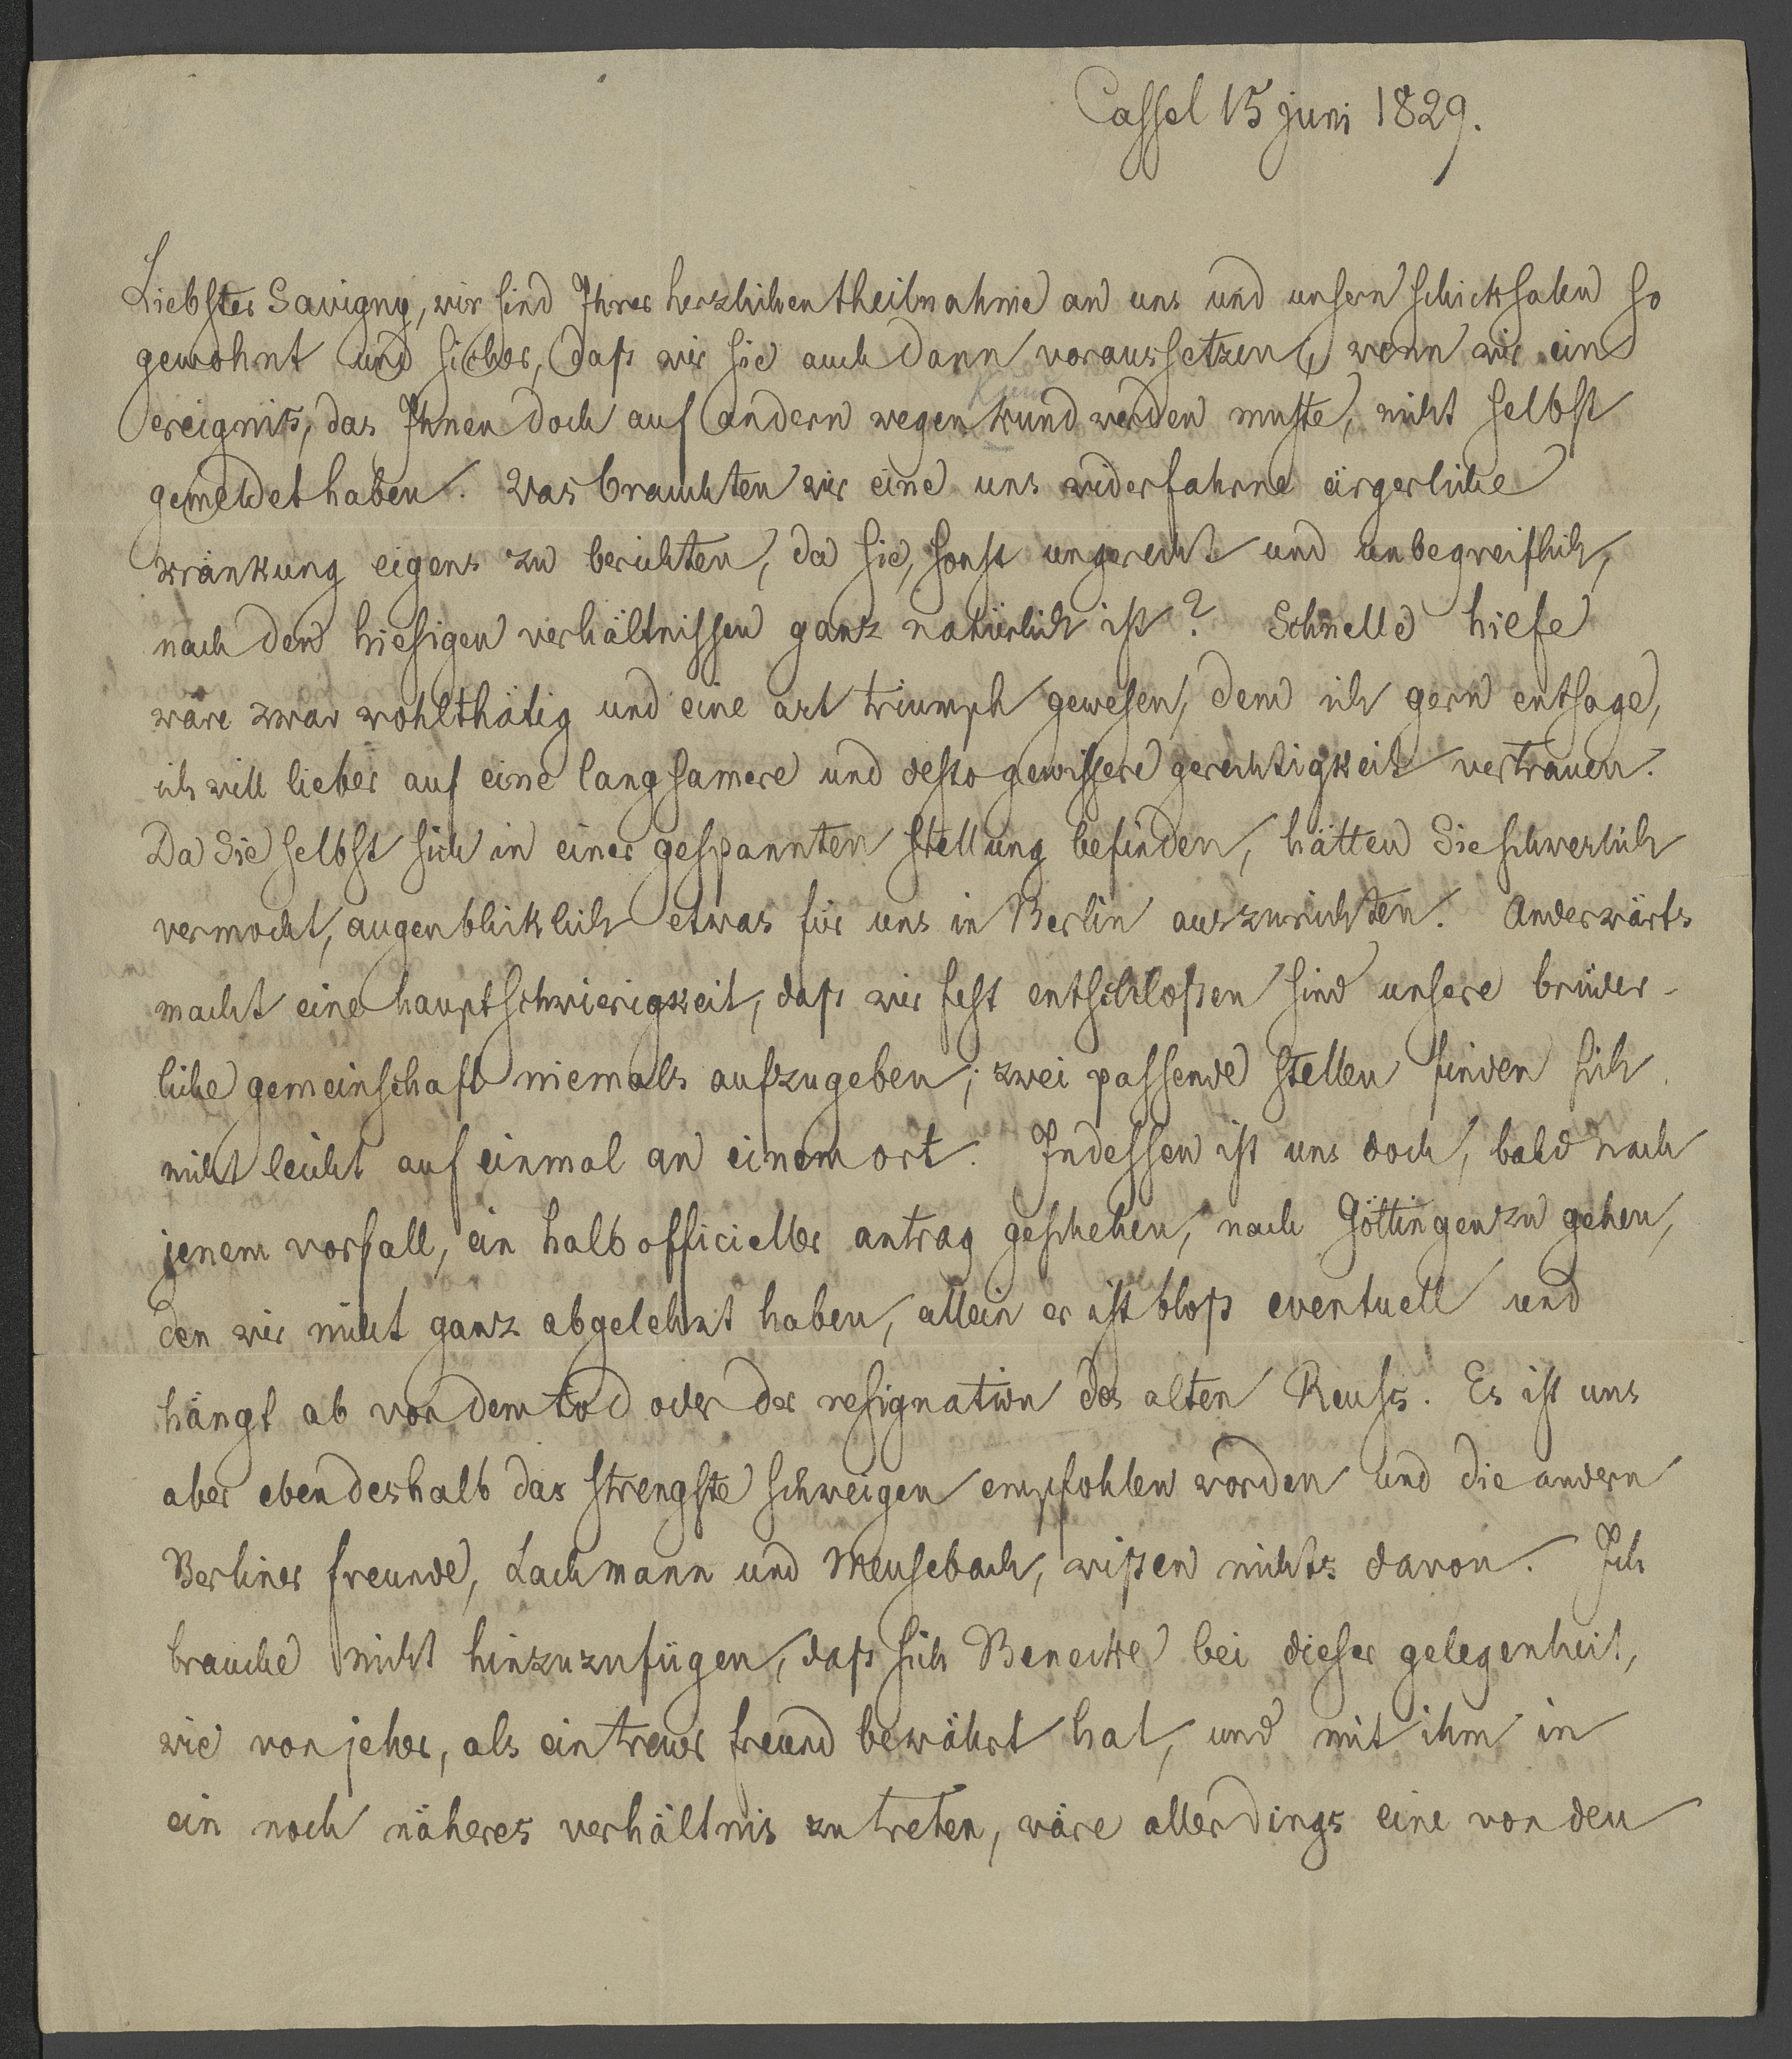 Cassel 15 juni 1829.
Liebster Savigny, wir sind Ihrer herzlichen theilnahme an uns und unsern schicksalen so
gewohnt und sicher, daß wir sie auch dann voraussetzen, wenn wir ein
ereignis, das Ihnen doch auf andern wegen kund werden muste, nicht selbst
gemeldet haben. Was brauchten wir eine uns widerfahrne ärgerliche
kränkung eigens zu berichten, da sie, sonst ungerecht und unbegreiflich,
nach den hiesigen verhältnissen ganz natürlich ist? Schnelle hilfe
wäre zwar wohlthätig und eine art triumph gewesen, dem ich gern entsage,
ich will lieber auf eine langsamere und desto gewissere gerechtigkeit vertrauen.
Da Sie selbst sich in einer gespannten stellung befinden, hätten Sie schwerlich
vermocht, augenblicklich etwas für uns in Berlin auszurichten. Anderwärts
macht eine hauptschwierigkeit, daß wir fest entschloßen sind unsere brüder-
liche gemeinschaft niemals aufzugeben; zwei passende stellen finden sich
nicht leicht auf einmal an einem ort. Indessen ist uns doch, bald nach
jenem vorfall, ein halb officieller antrag geschehen, nach Göttingen zu gehen,
den wir nicht ganz abgelehnt haben, allein er ist bloß eventuell und
hängt ab von dem tod oder der resignation des alten Reuss. Es ist uns
aber eben deshalb das strengste schweigen empfohlen worden und die andern
Berliner freunde, Lachmann und Meusebach, wißen nichts davon. Ich
brauche nicht hinzuzufügen, daß sich Benecke bei dieser gelegenheit,
wie von jeher, als ein treuer freund bewährt hat, und mit ihm in
ein noch näheres verhältnis zu treten, wäre allerdings eine von den